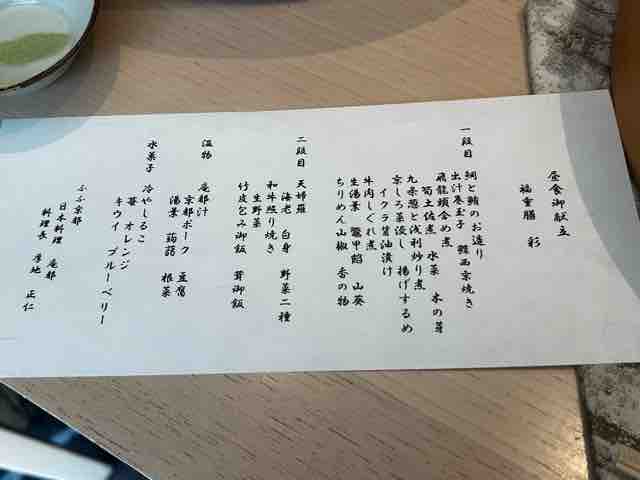 昼食御献立
福重膳 彩
一段目 鯛と鮪のお造り
出汁巻玉子 鰆西京焼き
飛龍頭含め煮
筍土佐煮 水菜 木の芽
九条葱と浅利炒り煮
京しろ菜浸し 揚げするめ
イクラ醤油漬け
牛肉しぐれ煮
生湯葉 鼈甲餡 山葵
ちりめん山椒 香の物
二段目 天婦羅
海老 白身 野菜二種
和牛照り焼き
生野菜
竹皮包み御飯 茸御飯
温物 庵都汁
京都ポーク 豆腐
湯葉 蒟蒻 根菜
水菓子 冷やしるこ
苺 オレンジ
キウイ ブルーベリー
ふふ京都
日本料理 庵都
料理長 正仁